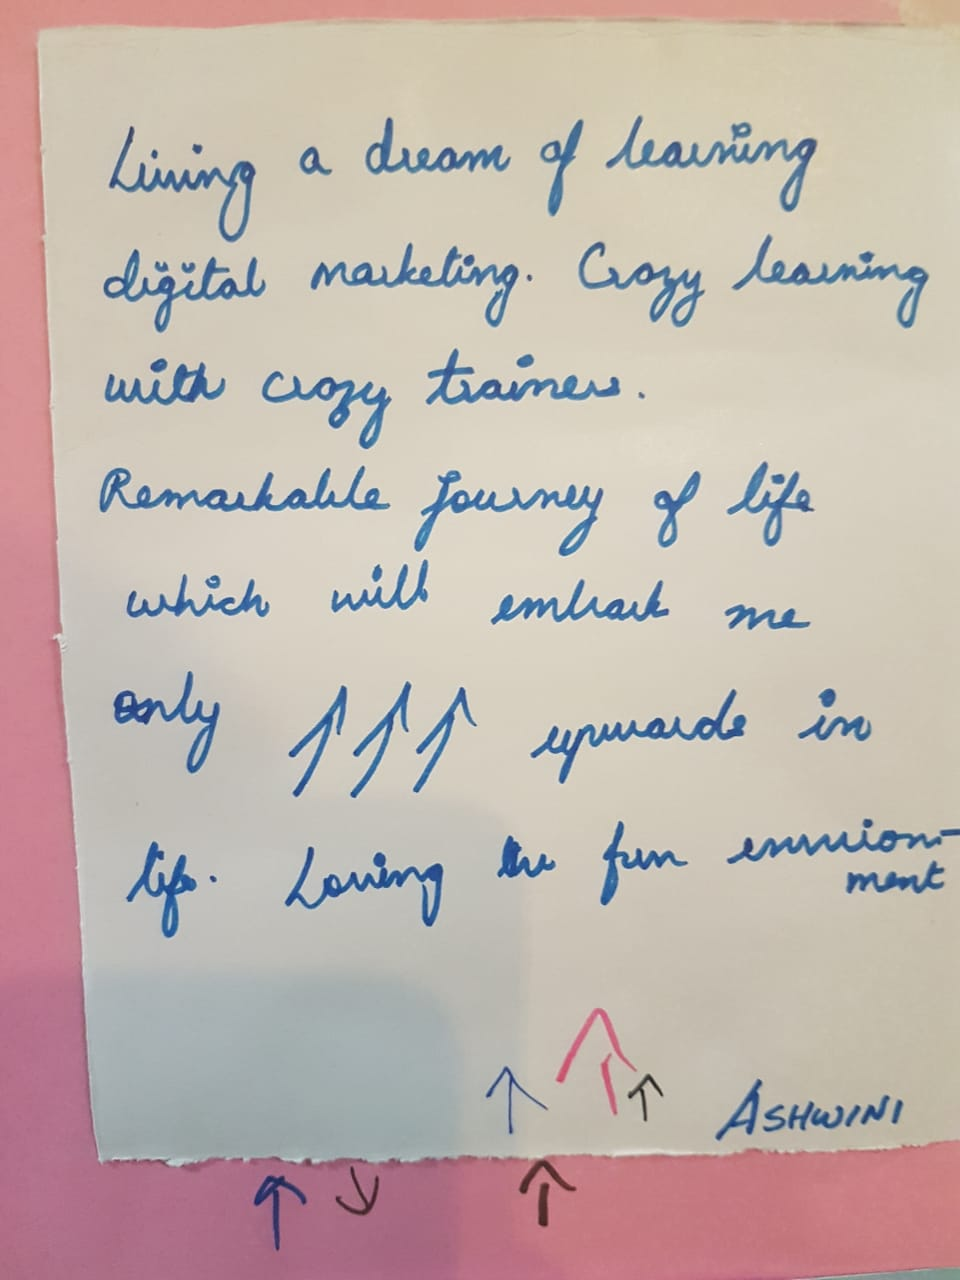 Living a dream of learning
digital marketing. Crazy learning
with crazy trainers.
Remarkable journey of life
which will embark me
only ↑↑↑ upwards in
life. Loving the fun environ-
ment
ASHWINI